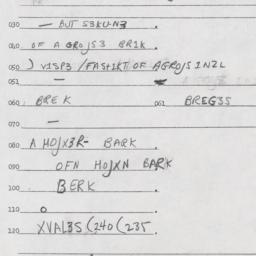 030 — BUT S3KUN3 .
040 OF A GROJS3 BR1K .
050 ) V1SP3 /FAS+1KT OF AGROJS INZL
051 —
060 BRE K 061 BREG3S
070 —
080 A HOJX3R- BARK .
090 OFN HOJXN BARK
100 BERK .
110 O
120 XVAL3S (240 (235 .